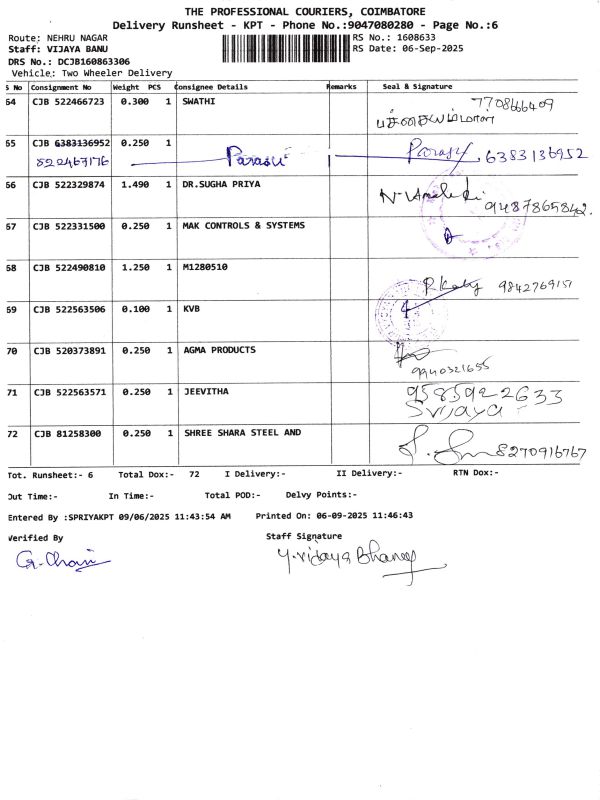 THE PROFESSIONAL COURIERS, COIMBATORE
Delivery Runsheet - KPT - Phone No.:9047080280 - Page No.:6
Route: NEHRU NAGAR RS No.: 1608633
Staff: VIJAYA BANU RS Date: 06-Sep-2025
DRS No.: DCJB160863306
Vehicle: Two Wheeler Delivery
S No Consignment No Weight PCS Consignee Details Remarks Seal & Signature
64 CJB 522466723 0.300 1 SWATHI 7708666409
பச்சையம்மாள்
65 CJB 6383136952 0.250 1
522467176 Parasu Parasu 6383136952
66 CJB 522329874 1.490 1 DR.SUGHA PRIYA 9487865842.
67 CJB 522331500 0.250 1 MAK CONTROLS & SYSTEMS
68 CJB 522490810 1.250 1 M1280510 9842769151
69 CJB 522563506 0.100 1 KVB
70 CJB 520373891 0.250 1 AGMA PRODUCTS
9940321655
71 CJB 522563571 0.250 1 JEEVITHA 9585922633
Srijaya
72 CJB 81258300 0.250 1 SHREE SHARA STEEL AND 8270916767
Tot. Runsheet:- 6 Total Dox:- 72 I Delivery:- II Delivery:- RTN Dox:-
Out Time:- In Time:- Total POD:- Delvy Points:-
Entered By :SPRIYAKPT 09/06/2025 11:43:54 AM Printed On: 06-09-2025 11:46:43
Verified By Staff Signature